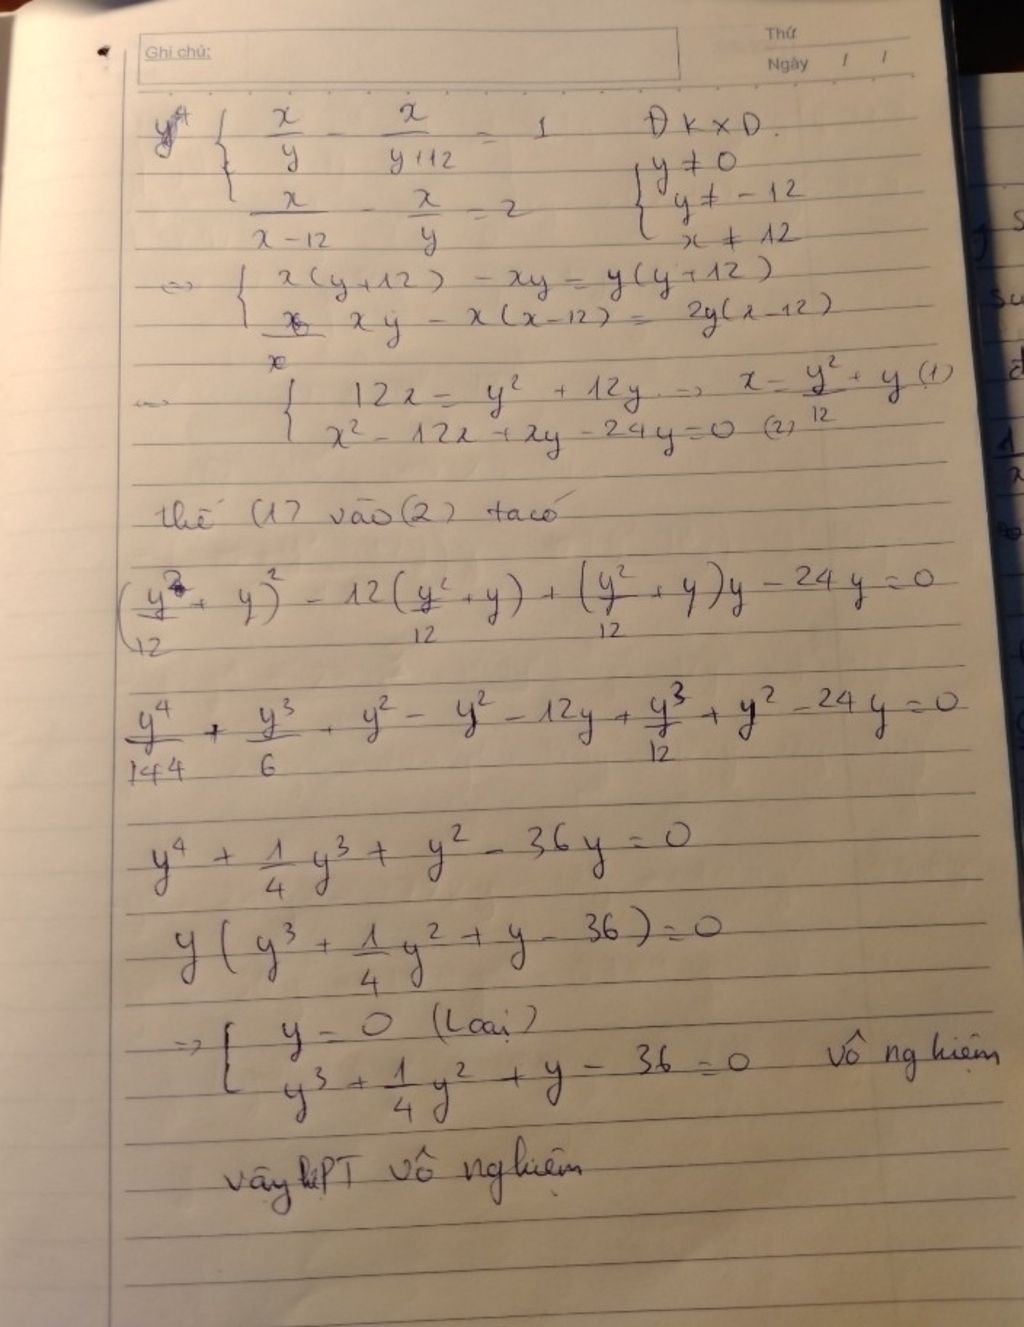 Ghi chú:
Thứ
Ngày / /
{ x/y - x/(y+12) = 1 ĐKXĐ.
x/(x-12) - x/y = 2 { y ≠ 0
y ≠ -12
x ≠ 12
<=> { x(y+12) - xy = y(y+12)
xy - x(x-12) = 2y(x-12)
<=> { 12x = y² + 12y => x = y²/12 + y (1)
x² - 12x + xy - 24y = 0 (2)
thế (1) vào (2) ta có
(y²/12 + y)² - 12(y²/12 + y) + (y²/12 + y)y - 24y = 0
y⁴/144 + y³/6 + y² - y² - 12y + y³/12 + y² - 24y = 0
y⁴ + 1/4 y³ + y² - 36y = 0
y(y³ + 1/4 y² + y - 36) = 0
=> [ y = 0 (Loại)
y³ + 1/4 y² + y - 36 = 0 vô nghiệm
vậy hPT vô nghiệm